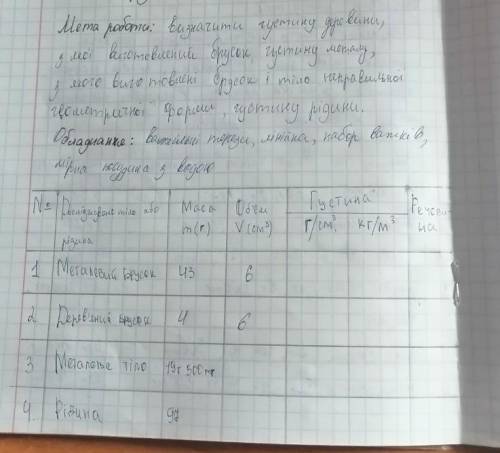 Мета роботи: визначити густину деревини,
з якої виготовлений брусок, густину металу,
з якого виготовлені брусок і тіло неправильної
геометричної форми, густину рідини.
Обладнання: важільні терези, лінійка, набор важків,
мірна посудина з водою
№ Досліджуване тіло або рідина Маса m(г.) Об'єм V(см³) Густина г/см³ кг/м³ Речовина
1 Металевий брусок 43 6
2 Дерев'яний брусок 4 6
3 Металеве тіло 19г 500мг
4. Рідина 97